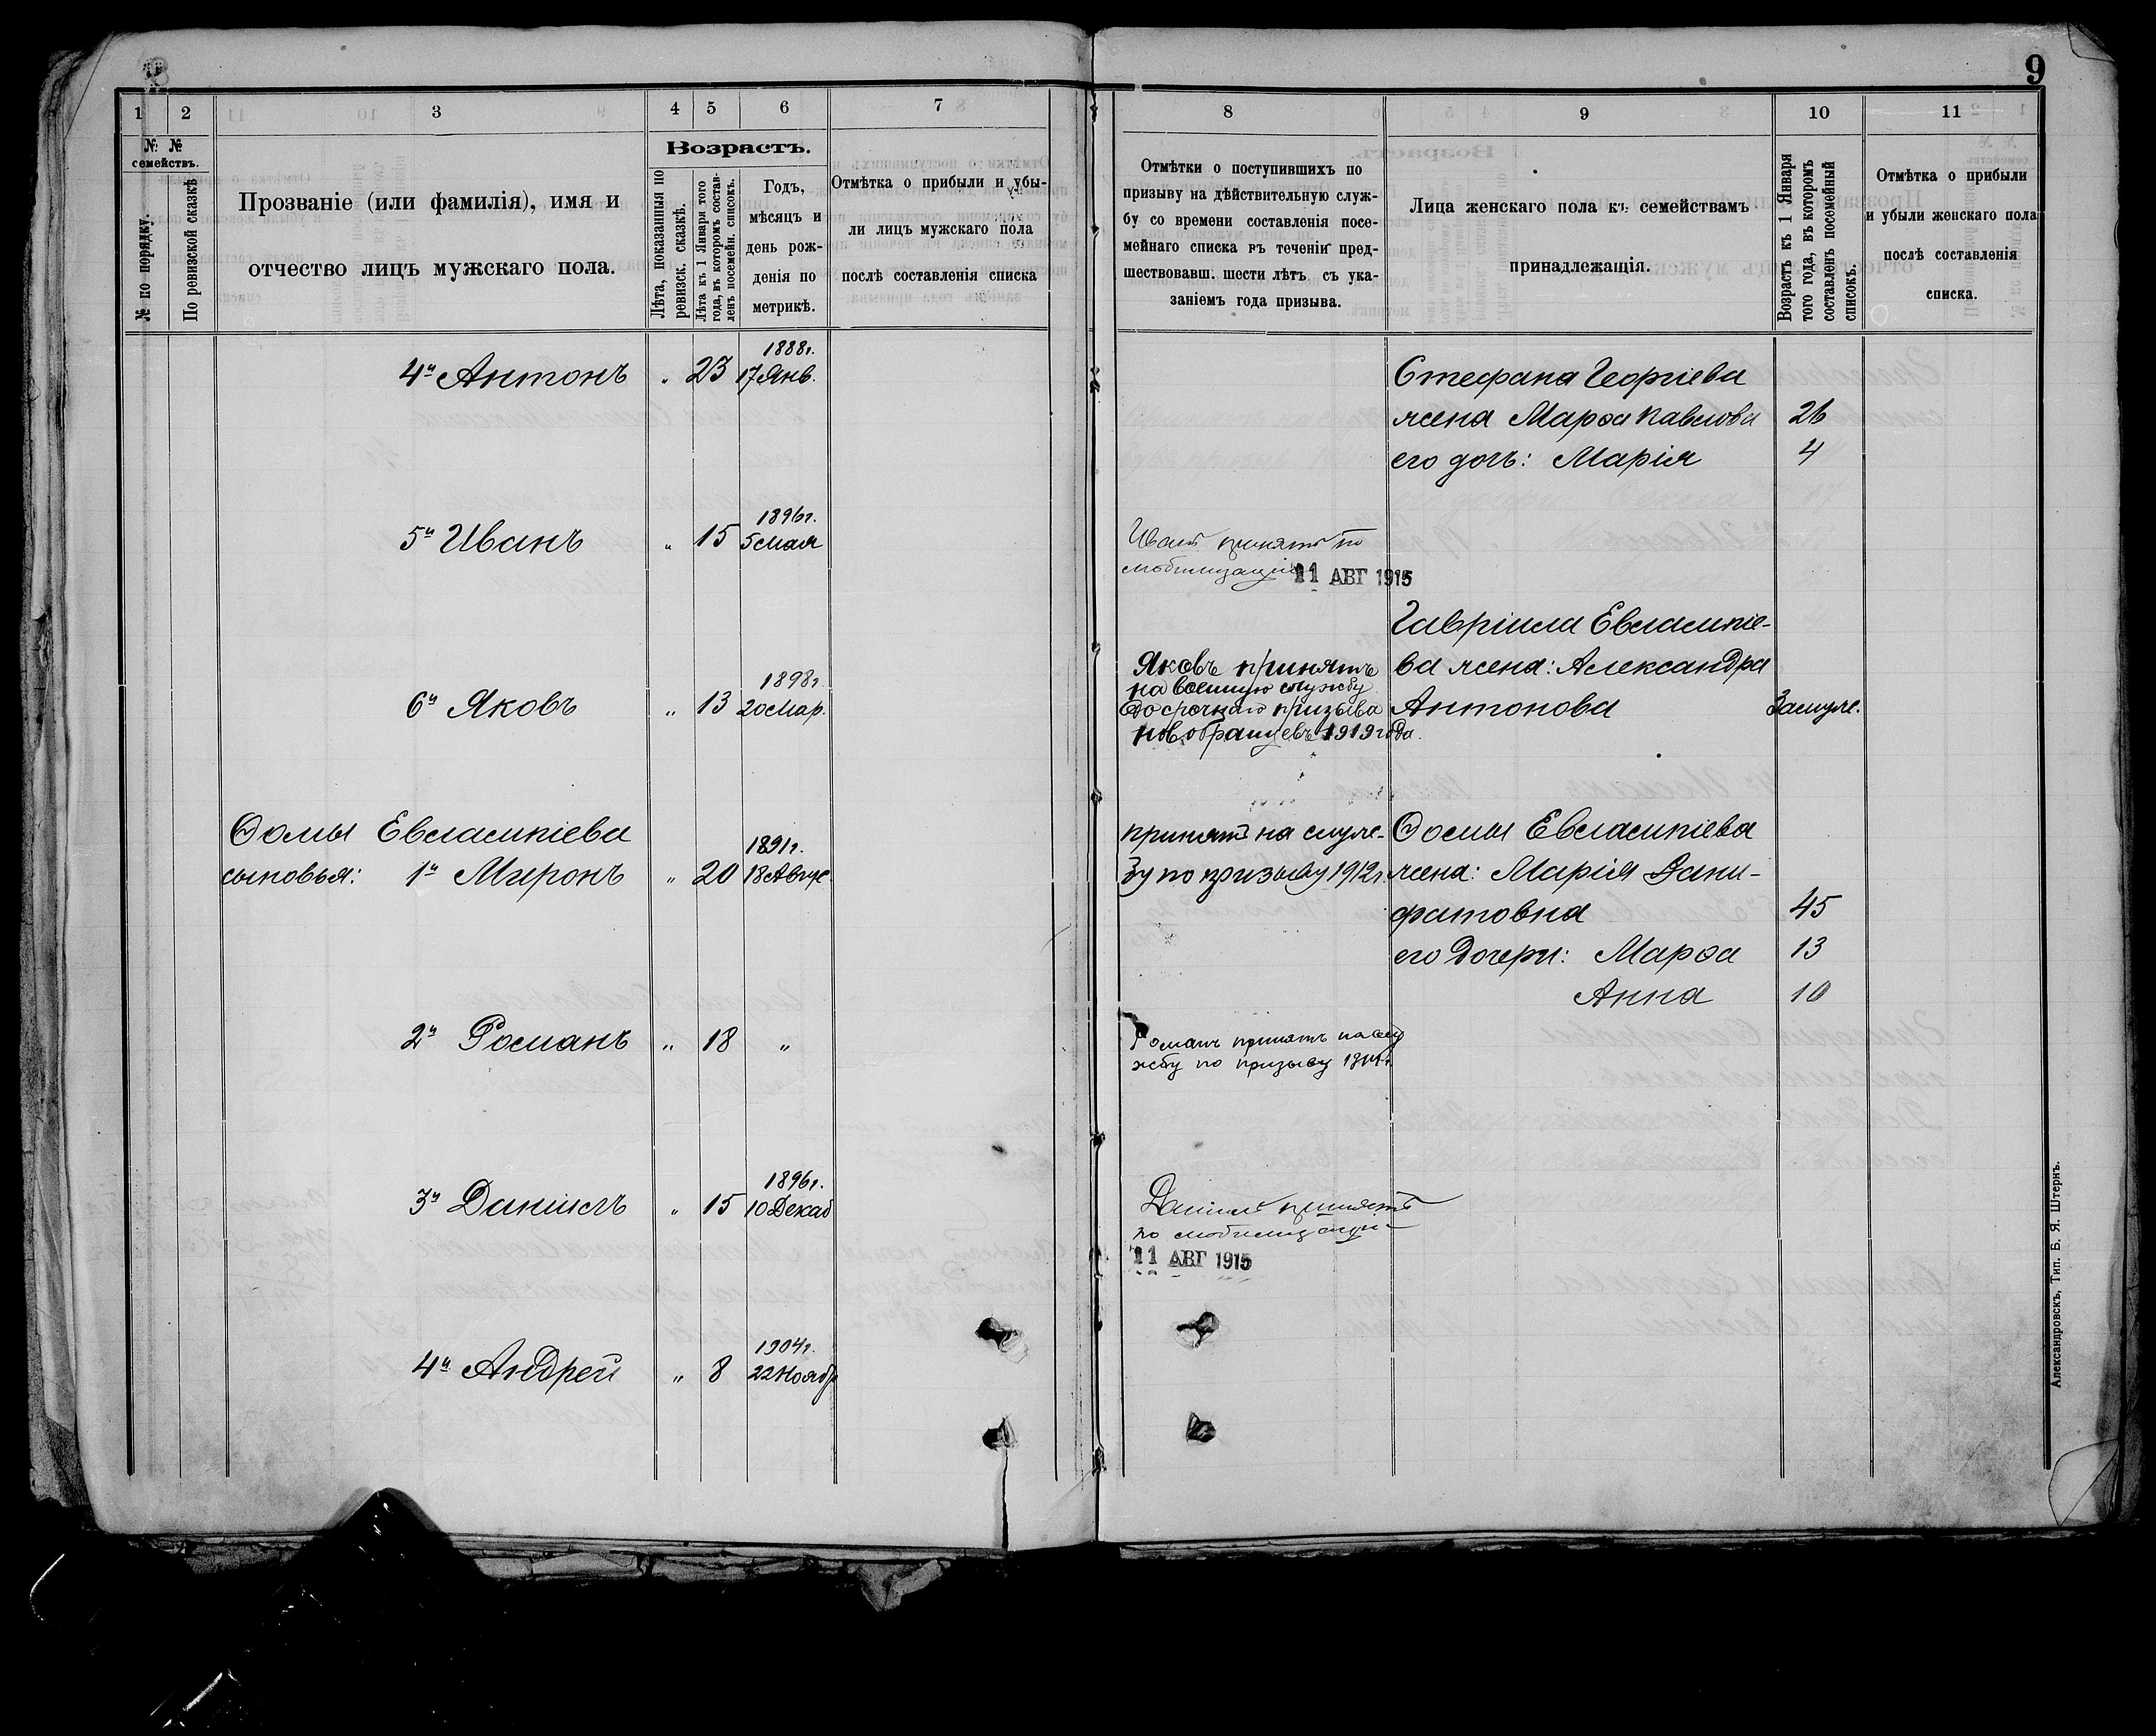 9
1 2 3 4 5 6 7
№ № семействъ.
№ по порядку.
По ревизской сказкѣ
Прозваніе (или фамилія), имя и
отчество лицъ мужскаго пола.
Возрастъ.
Лѣта, показанныя по
ревизск. сказкѣ.
Лѣта къ 1 Января того
года, въ которомъ состав-
ленъ посемейн. списокъ.
Годъ,
мѣсяцъ и
день рож-
денія по
метрикѣ.
Отмѣтка о прибыли и убы-
ли лицъ мужскаго пола
послѣ составленія списка
4й Антонъ " 23 1888г.
17 Янв.
5й Иванъ " 15 1896г.
5 Мая
6й Яковъ " 13 1898г.
20 Мар.
Ѳомы Евлампіева
сыновья: 1й Миронъ " 20 1891г.
18 Авгус.
2й Романъ " 18 "
3й Даніилъ " 15 1896г.
10 Декаб
4й Андрей " 8 1904г.
22 Ноябр
8 9 10 11
Отмѣтки о поступившихъ по
призыву на дѣйствительную служ-
бу со времени составленія посе-
мейнаго списка въ теченіи пред-
шествовавш. шести лѣтъ съ ука-
заніемъ года призыва.
Лица женскаго пола къ семействамъ
принадлежащія.
Возрастъ къ 1 Января
того года, въ которомъ
составленъ посемейный
списокъ.
Отмѣтка о прибыли
и убыли женскаго пола
послѣ составленія
списка.
Стефана Георгіева
жена Марѳа Павлова 26
его дочь: Марія 4
Иванъ принятъ по
мобилизаціи 11 АВГ 1915
Гавріила Евлампіе-
ва жена: Александра
Антонова Замуж.
Яковъ принятъ
на военную службу
досрочнаго призыва
новобранцевъ 1919 года.
принятъ на служ-
бу по призыву 1912г.
Ѳомы Евлампіева
жена: Марія
фатовна 45
его дочери: Марѳа 13
Анна 10
Романъ принятъ на слу
жбу по призыву 1914г.
Даніилъ принятъ
по мобилизаціи
11 АВГ 1915
Александровскъ, Тип. Б. Я. Штернъ.